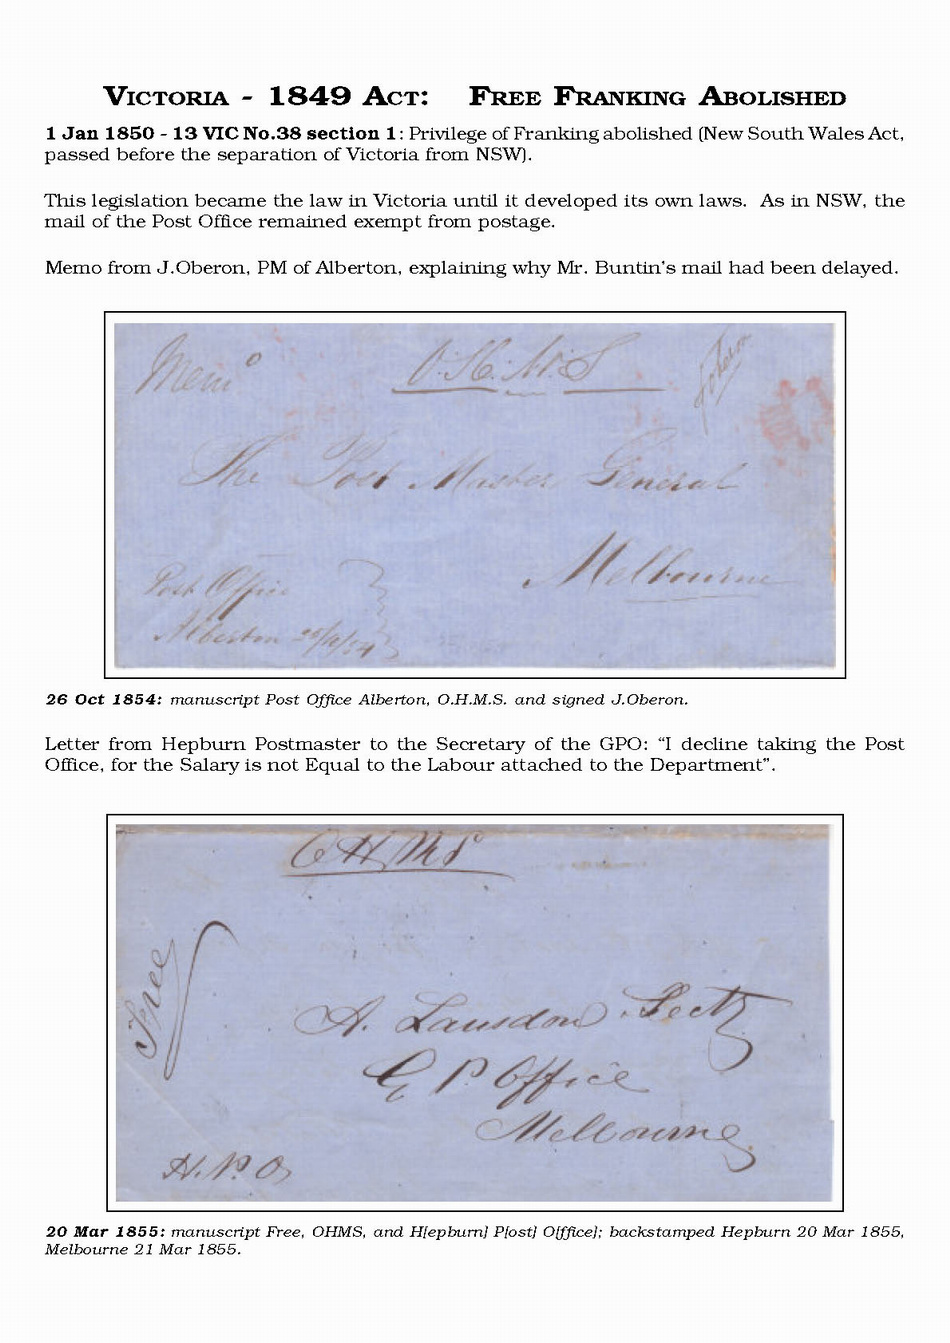 VICTORIA - 1849 ACT: FREE FRANKING ABOLISHED
1 Jan 1850 - 13 VIC No.38 section 1: Privilege of Franking abolished (New South Wales Act,
passed before the separation of Victoria from NSW).
This legislation became the law in Victoria until it developed its own laws. As in NSW, the
mail of the Post Office remained exempt from postage.
Memo from J.Oberon, PM of Alberton, explaining why Mr. Buntin's mail had been delayed.
Memo
O.H.M.S
JOberon
The Post Master General
Melbourne
Post Office
Alberton
26 Oct 1854: manuscript Post Office Alberton, O.H.M.S. and signed J.Oberon.
Letter from Hepburn Postmaster to the Secretary of the GPO: “I decline taking the Post
Office, for the Salary is not Equal to the Labour attached to the Department”.
OHMS
Free
A. Lausdon Secty
G P Office
Melbourne
H.P.O
20 Mar 1855: manuscript Free, OHMS, and H[epburn] P[ost] O[ffice]; backstamped Hepburn 20 Mar 1855,
Melbourne 21 Mar 1855.